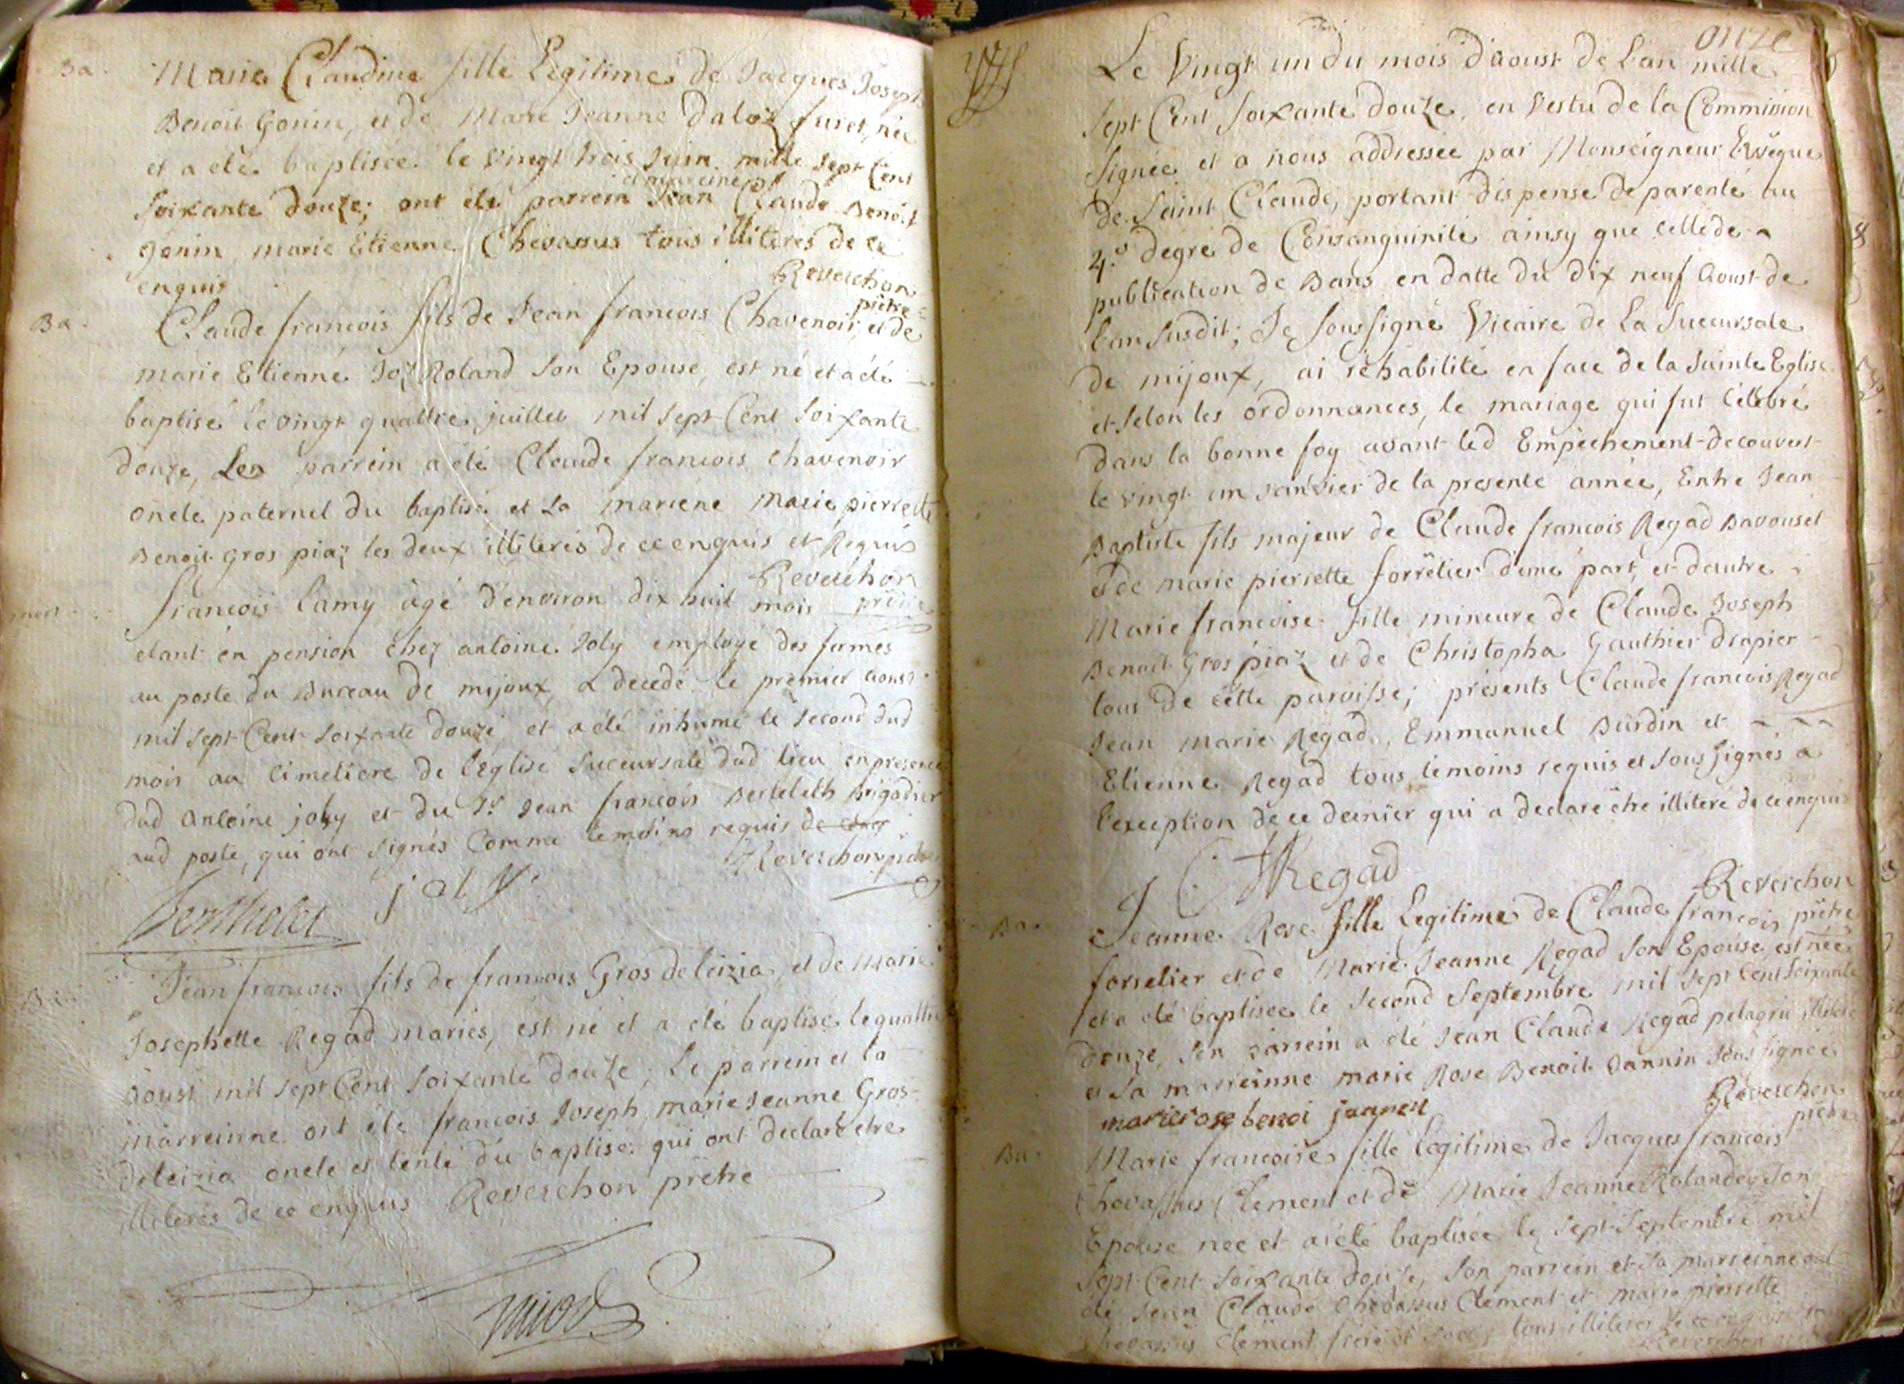 Ba.
Marie Claudine fille Legitime de Jacques Joseph
Benoit Gonin, et de Marie Jeanne Daloz furet, née
et a été baptisée le vingt trois juin mille sept Cent
et mareine
Soixante douze; ont été parrein Jean Claude Benoit
Gonin marie Etienne Chevassus tous illiteres de ce
enquis
Reverchon
prêtre
Ba.
Claude francois fils de Jean francois Chavenoir, et de
marie Etienne Joz Roland son Epouse, est né et a été
baptisé le vingt quattre juillet mil sept Cent soixante
douze, Le parrein a été Claude francois chavenoir
oncle paternel du baptisé et La mareine Marie pierrette
Benoit Gros piaz les deux illiterés de ce enquis et Requis
Reverchon
prêtre
mort
francois Lamy âgé d'environ dix huit mois
étant en pension chez antoine Joly employé des fermes
au poste du Bureau de mijoux, a decedé le premier aoust
mil sept Cent soixante douze et a été inhumé le second dud
mois au cimetiere de l'église succursale dud lieu en presence
dud antoine joly et du Sr Jean francois Berteleth brigadier
aud poste, qui ont signés comme temoins requis de
Reverchon prêtre
Berthelet joly
Ba.
Jean francois fils de francois Gros deleizia, et de Marie
Josephette Regad mariés, est né et a été baptisé le quattre
Aoust mil sept Cent soixante douze; Le parrein et la
marreinne ont été francois Joseph, marie Jeanne Gros-
deleizia oncle et tente du baptisé qui ont declaré être
illiterés de ce enquis Reverchon prêtre
onze
Le Vingt un du mois d'aoust de l'an mille
sept Cent soixante douze, en vertu de la Commission
signée et a nous addressée par Monseigneur Evêque
de Saint Claude, portant dispense de parenté au
4.e degré de Consanguinité ainsy que celle de
publication de Bans en datte du dix neuf Aoust de
l'an susdit; Je soussigné Vicaire de La Succursale
de mijoux, ai réhabilité en face de la Sainte Eglise
et selon les ordonnances, le mariage qui fut célebré
dans la bonne foy avant led Empèchement decouvert
le vingt un janvier de la presente année, Entre Jean
Baptiste fils majeur de Claude francois Regad Bavousel
et de marie pierrette forrêtier d'une part, et d'autre
Marie francoise fille mineure de Claude Joseph
Benoit Gros piaz et de Christopha Gauthier drapier
tous de cette paroisse; présents Claude francois Regad
Jean marie Regad, Emmanuel Burdin et
Etienne Regad tous temoins requis et sous signés a
l'exception de ce dernier qui a declaré être illiteré de ce enquis
Regad
Reverchon
prêtre
Ba.
Jeanne Rose fille Legitime de Claude francois
forretier et de Marie Jeanne Regad son Epouse, est née
et a été baptisée le second Septembre mil sept Cent soixante
douze, son parrein a été Jean Claude Regad pelagru illiteré
et sa marreinne marie Rose Benoit Jannin sous signée
marierose benoi jannin
Reverchon
prêtre
Ba.
Marie francoise fille legitime de Jacques francois
Chevassus Clement et de Marie Jeanne Rolandez son
Epouse née et a été baptisée le sept Septembre mil
Sept Cent soixante douze, son parrein et sa marreinne ont
été Jean Claude Chevassus Clement et marie pierrette
Chevassus Clement frere et soeur tous illiteres de ce enquis
Reverchon